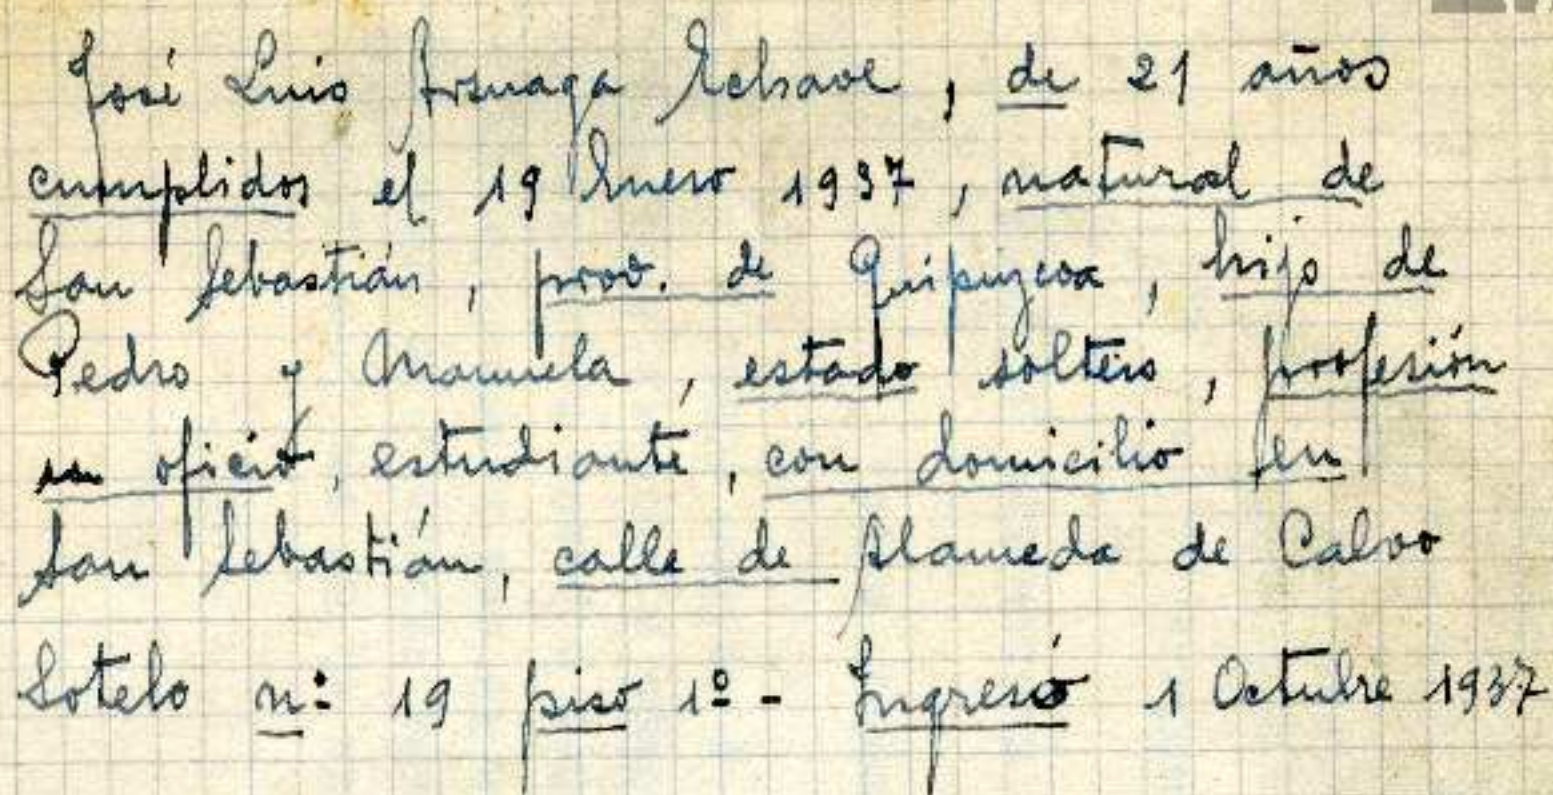 José Luis Arzuaga Echave, de 21 años
cumplidos el 19 Enero 1937, natural de
San Sebastián, prov. de Guipuzcoa, hijo de
Pedro y Manuela, estado soltero, profesión
u oficio, estudiante, con domicilio en
San Sebastián, calle de Alameda de Calvo
Sotelo nº 19 piso 1º - Ingresó 1 Octubre 1937